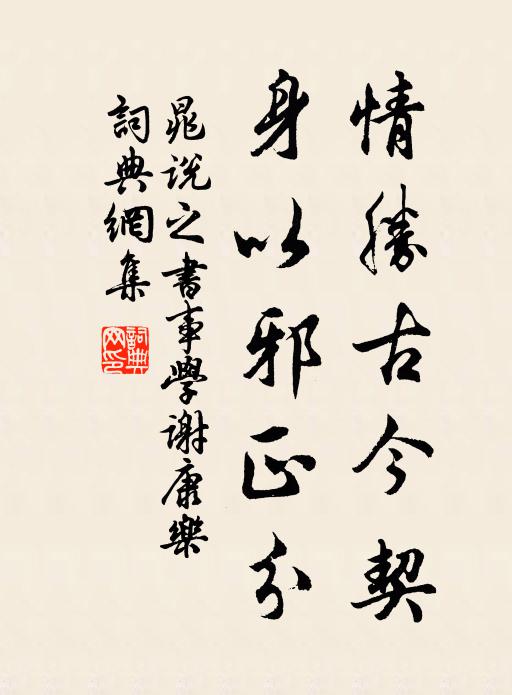 情勝古今契
身以邪正分
晁說之書事學謝康樂
詞典網集
詞典网印